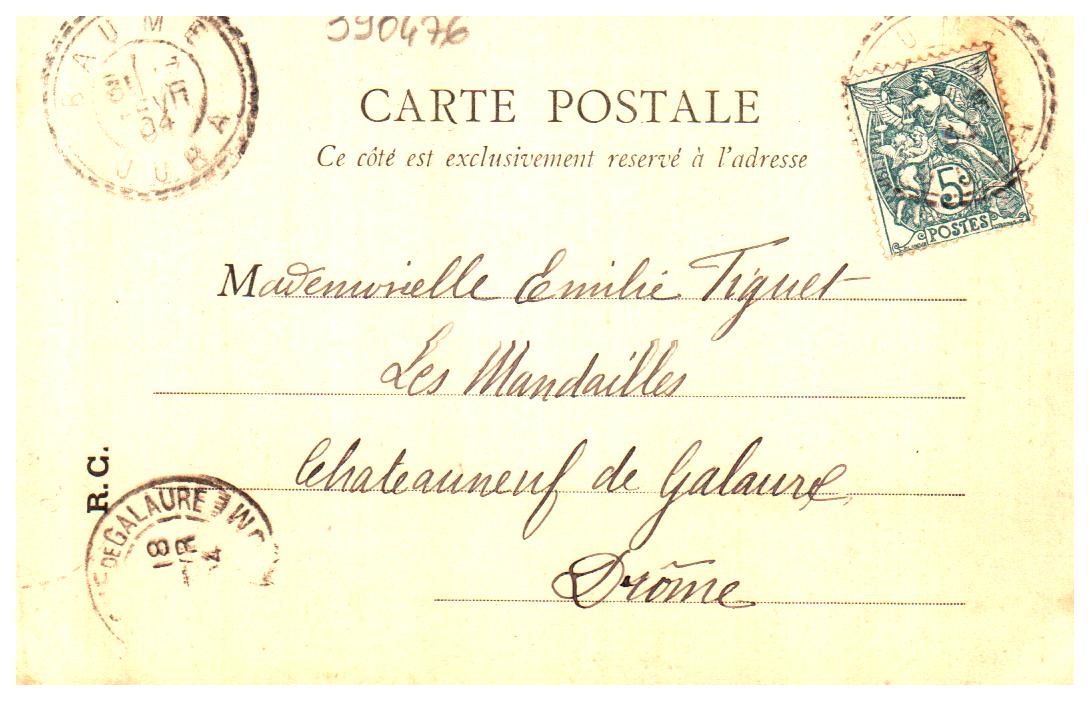 390476
BAUME
17
AVR
04
JURA
CARTE POSTALE
Ce côté est exclusivement reservé à l'adresse
5c
POSTES
Mademoiselle Emilie Tiguet
Les Mandailles
Chateauneuf de Galaure
Drôme
R. C.
DE GALAURE
18